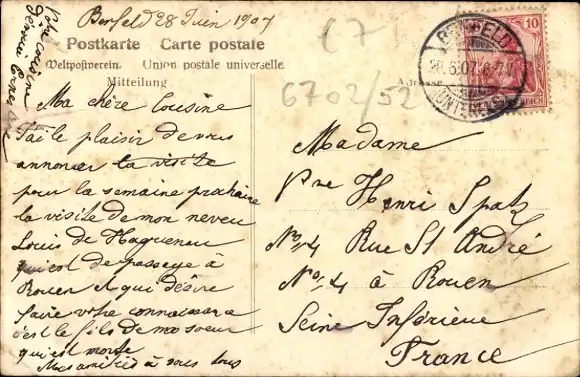 Benfeld 28 Juin 1907
Postkarte Carte postale
Weltpostverein. Union postale universelle.
Mitteilung
Adresse
Ma chère Cousine
J'ai le plaisir de vous
annoncer la visite
pour la semaine prochaine
la visite de mon neveu
Louis de Haguenau
qui est de passage à
Rouen et qui désire
faire votre connaissance
c'est le fils de ma soeur
qui est morte
Mes amitiés à vous tous
Votre cousine
C 7
6702/52
BENFELD
28.6.07. 6-7
10
REICH
Madame
Vve Henri Spatz
No 14 Rue St André
No 14 à Rouen
Seine Inférieure
France